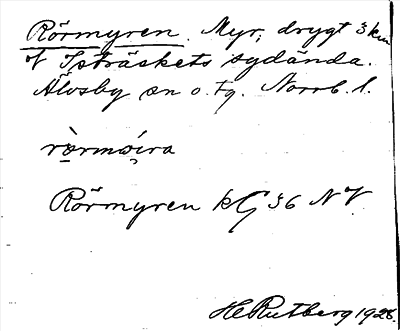 Rörmyren. Myr, drygt 3 km
V Isträskets sydända.
Älvsby sn o. tg. Norrb. l.
rörmoira
Rörmyren kG 36 NV.
HCRutberg 1928.